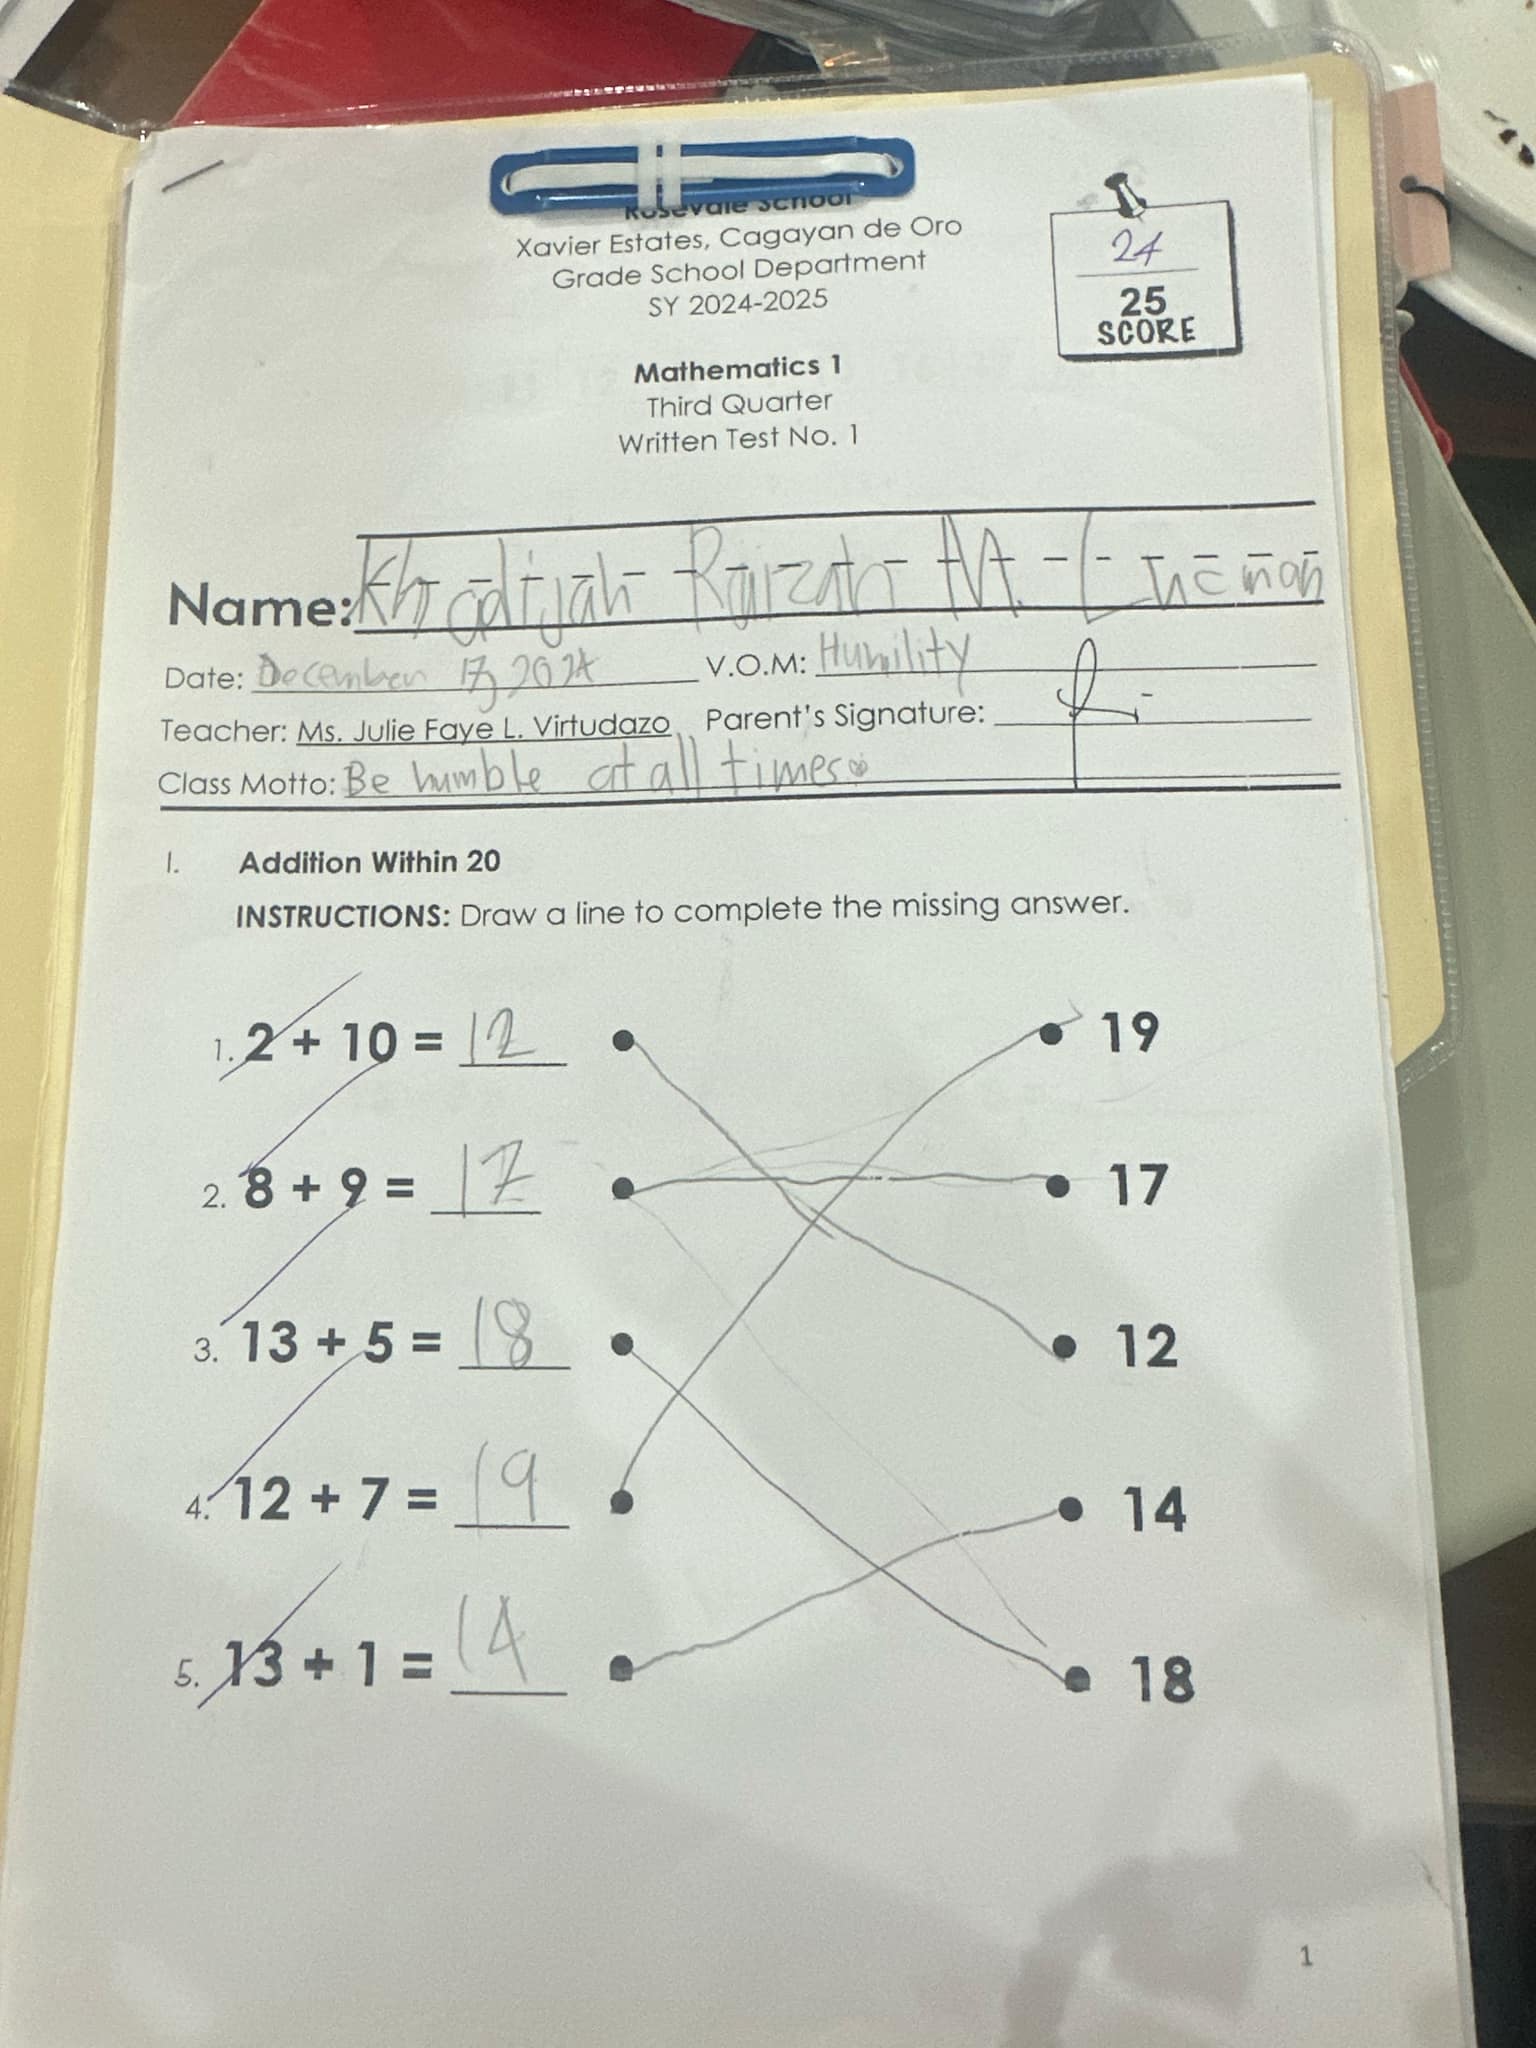 Rosevale School
Xavier Estates, Cagayan de Oro
Grade School Department
SY 2024-2025
24
25
SCORE
Mathematics 1
Third Quarter
Written Test No. 1
Name: Khadijah Raizah M. Lucman
Date: December 17, 2024 V.O.M: Humility
Teacher: Ms. Julie Faye L. Virtudazo Parent's Signature:
Class Motto: Be humble at all times.
I. Addition Within 20
INSTRUCTIONS: Draw a line to complete the missing answer.
1. 2 + 10 = 12 19
2. 8 + 9 = 17 17
3. 13 + 5 = 18 12
4. 12 + 7 = 19 14
5. 13 + 1 = 14 18
1